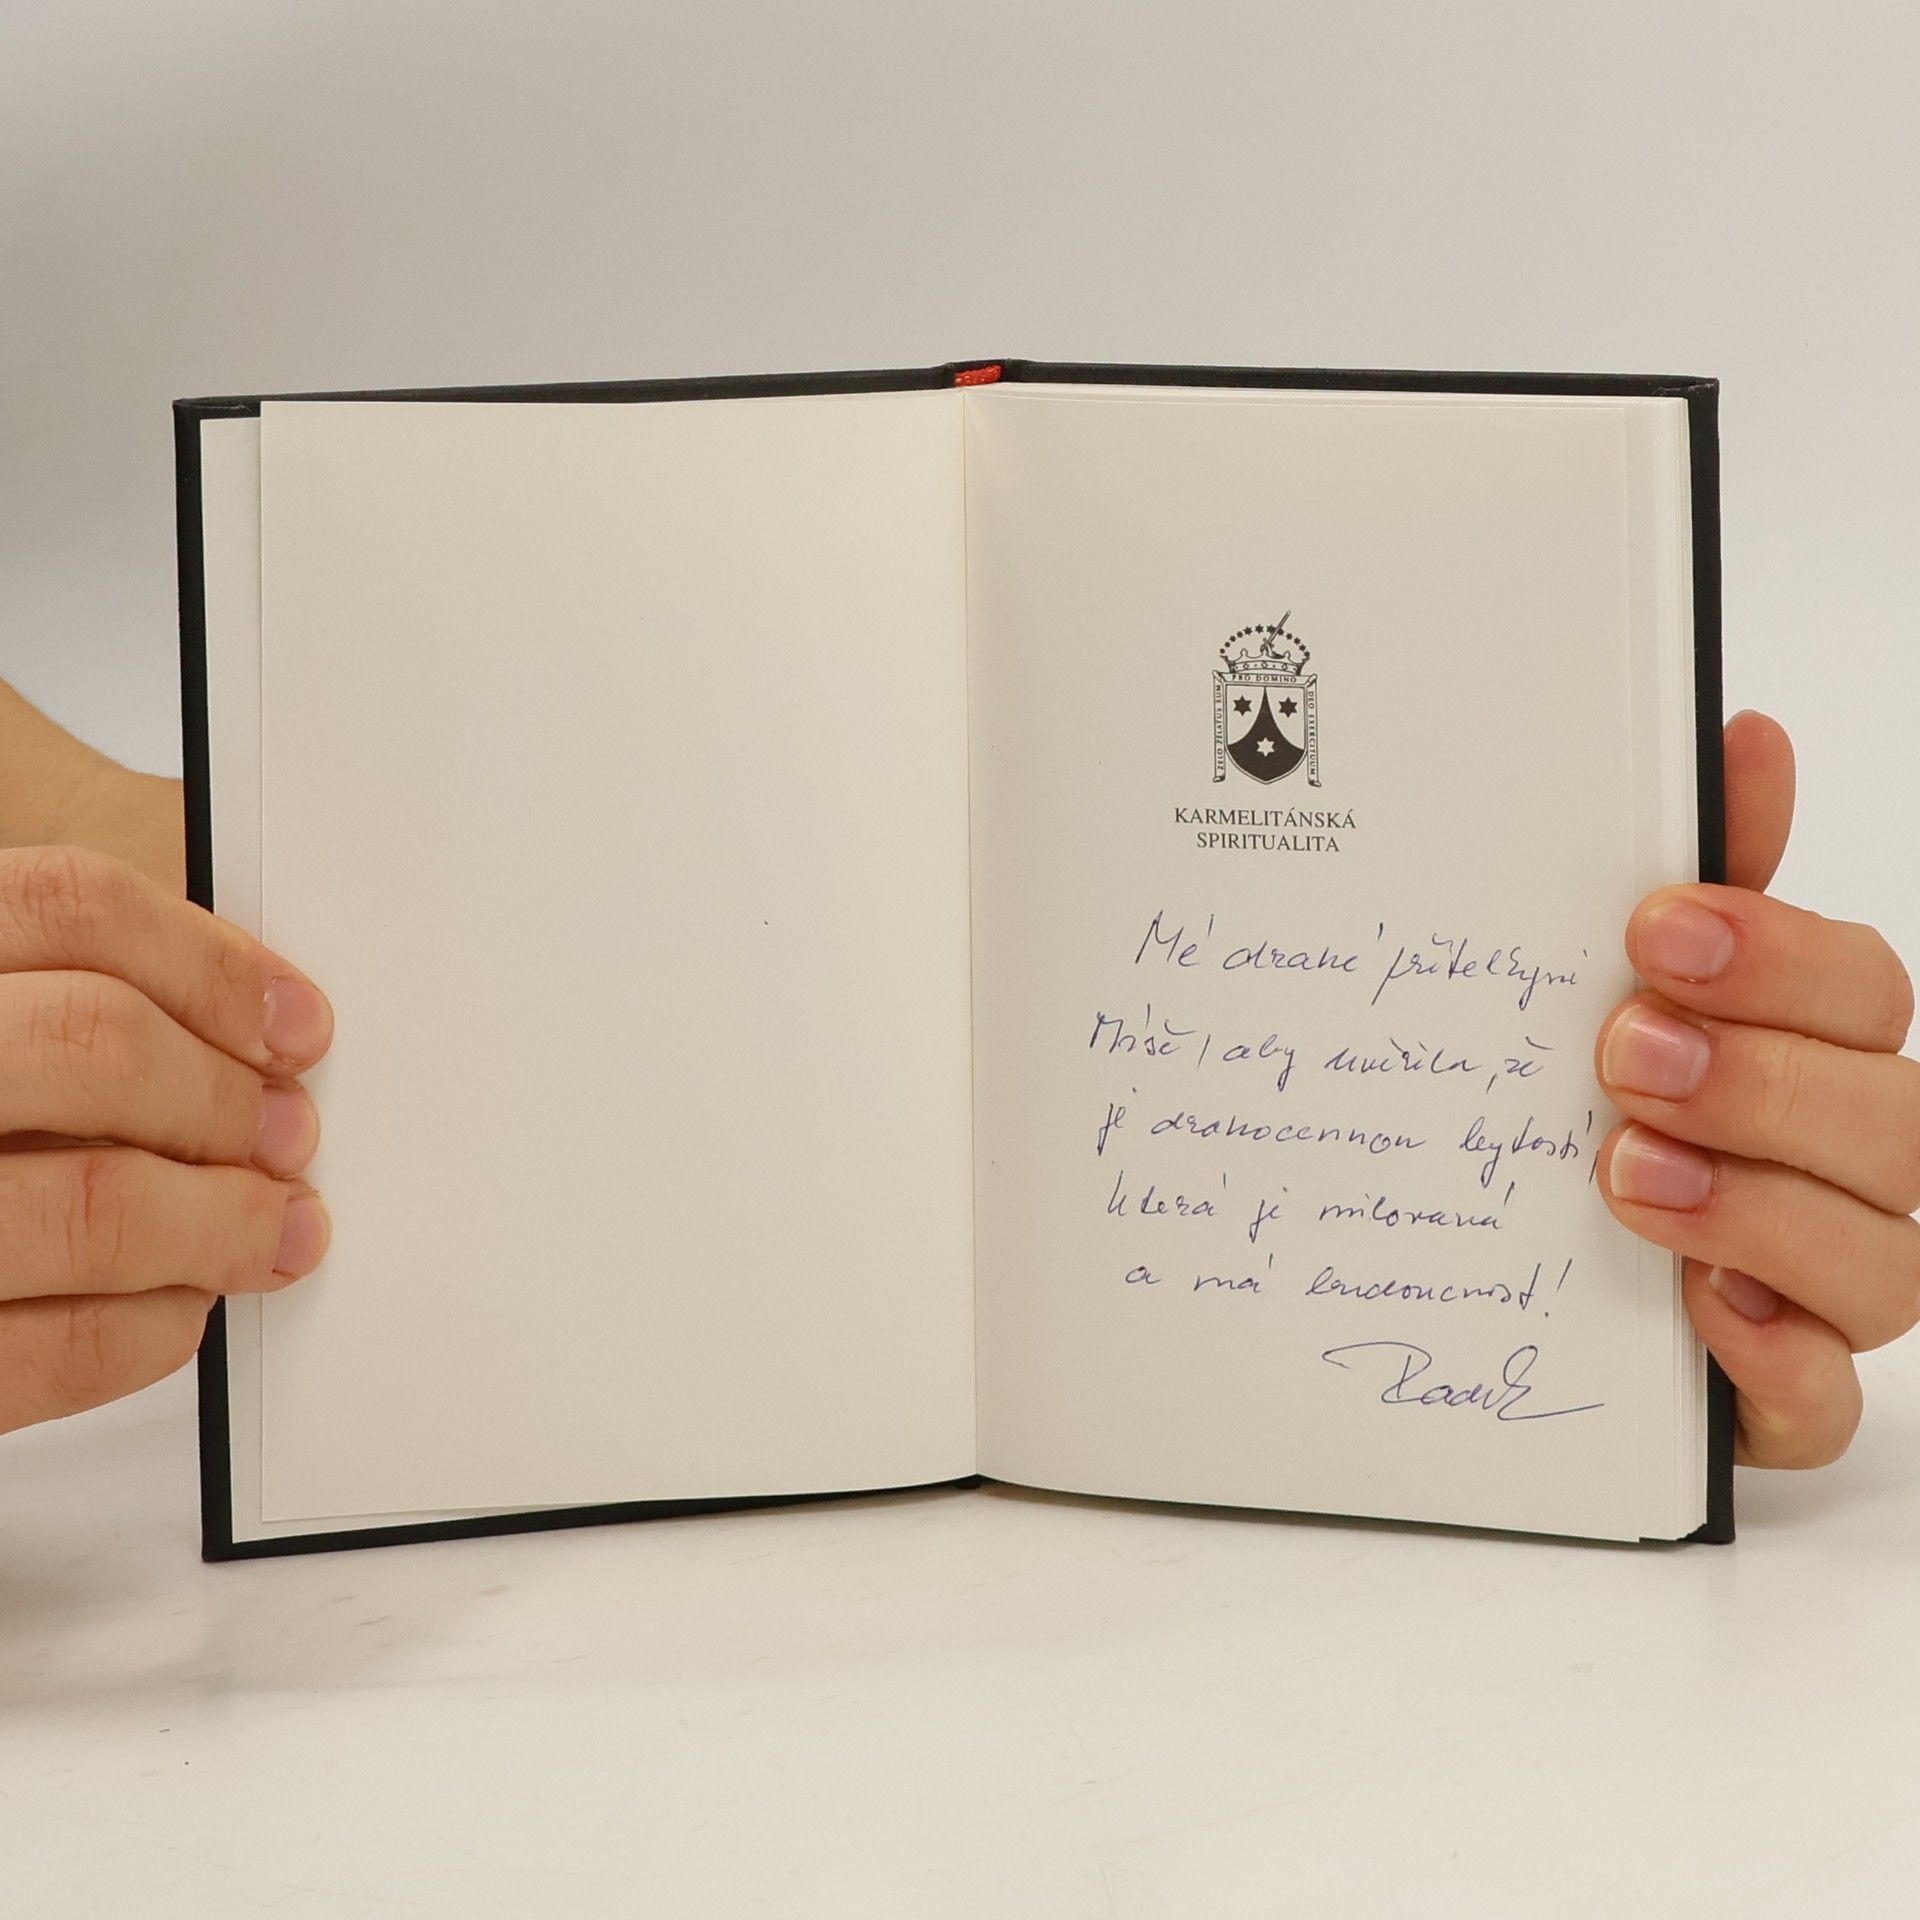 PRO DOMINO
ZELO ZELATUS SUM
DEO EXERCITUUM
KARMELITÁNSKÁ
SPIRITUALITA
Mé drahé přítelkyni
Míše, aby uvěřila, že
je drahocennou bytostí,
která je milovaná
a má budoucnost!
Radek